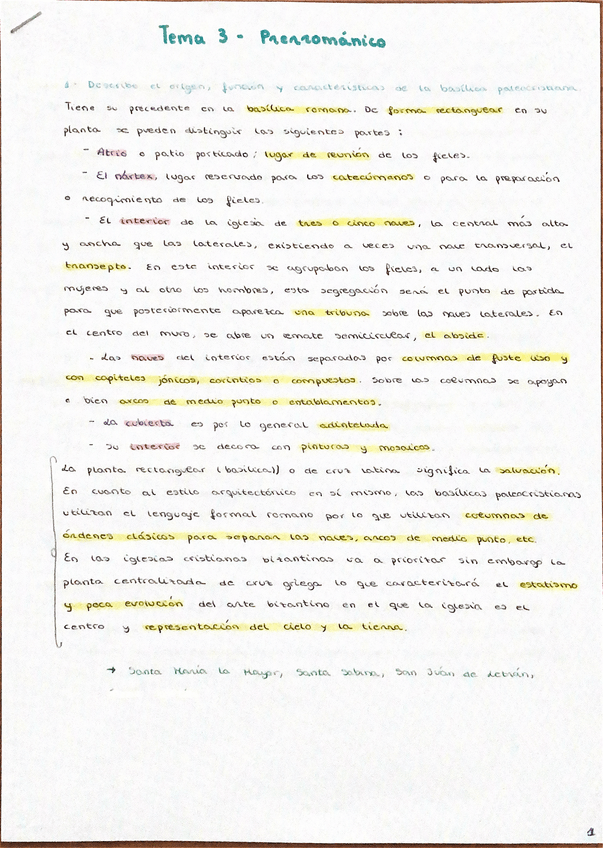 Tema 3 - Prerrománico
1- Describe el origen, función y características de la basílica paleocristiana.
Tiene su precedente en la basílica romana. De forma rectangular en su
planta se pueden distinguir las siguientes partes:
- Atrio o patio porticado; lugar de reunión de los fieles.
- El nártex, lugar reservado para los catecúmenos o para la preparación
o recogimiento de los fieles.
- El interior de la iglesia de tres o cinco naves, la central más alta
y ancha que las laterales, existiendo a veces una nave transversal, el
transepto. En este interior se agrupaban los fieles, a un lado las
mujeres y al otro los hombres, esta segregación será el punto de partida
para que posteriormente aparezca una tribuna sobre las naves laterales. En
el centro del muro, se abre un remate semicircular, el ábside.
- Las naves del interior están separadas por columnas de fuste liso y
con capiteles jónicos, corintios o compuestos. Sobre las columnas se apoyan
o bien arcos de medio punto o entablamentos.
- La cubierta es por lo general adintelada
- Su interior se decora con pinturas y mosaicos.
La planta rectangular (basilical) o de cruz latina significa la salvación.
En cuanto al estilo arquitectónico en sí mismo, las basílicas paleocristianas
utilizan el lenguaje formal romano por lo que utilizan columnas de
órdenes clásicos para separar las naves, arcos de medio punto, etc.
En las iglesias cristianas bizantinas va a priorizar sin embargo la
planta centralizada de cruz griega lo que caracterizará el estatismo
y poca evolución del arte bizantino en el que la iglesia es el
centro y representación del cielo y la tierra.
→ Santa María la Mayor, Santa Sabina, San Juan de Letrán,
1